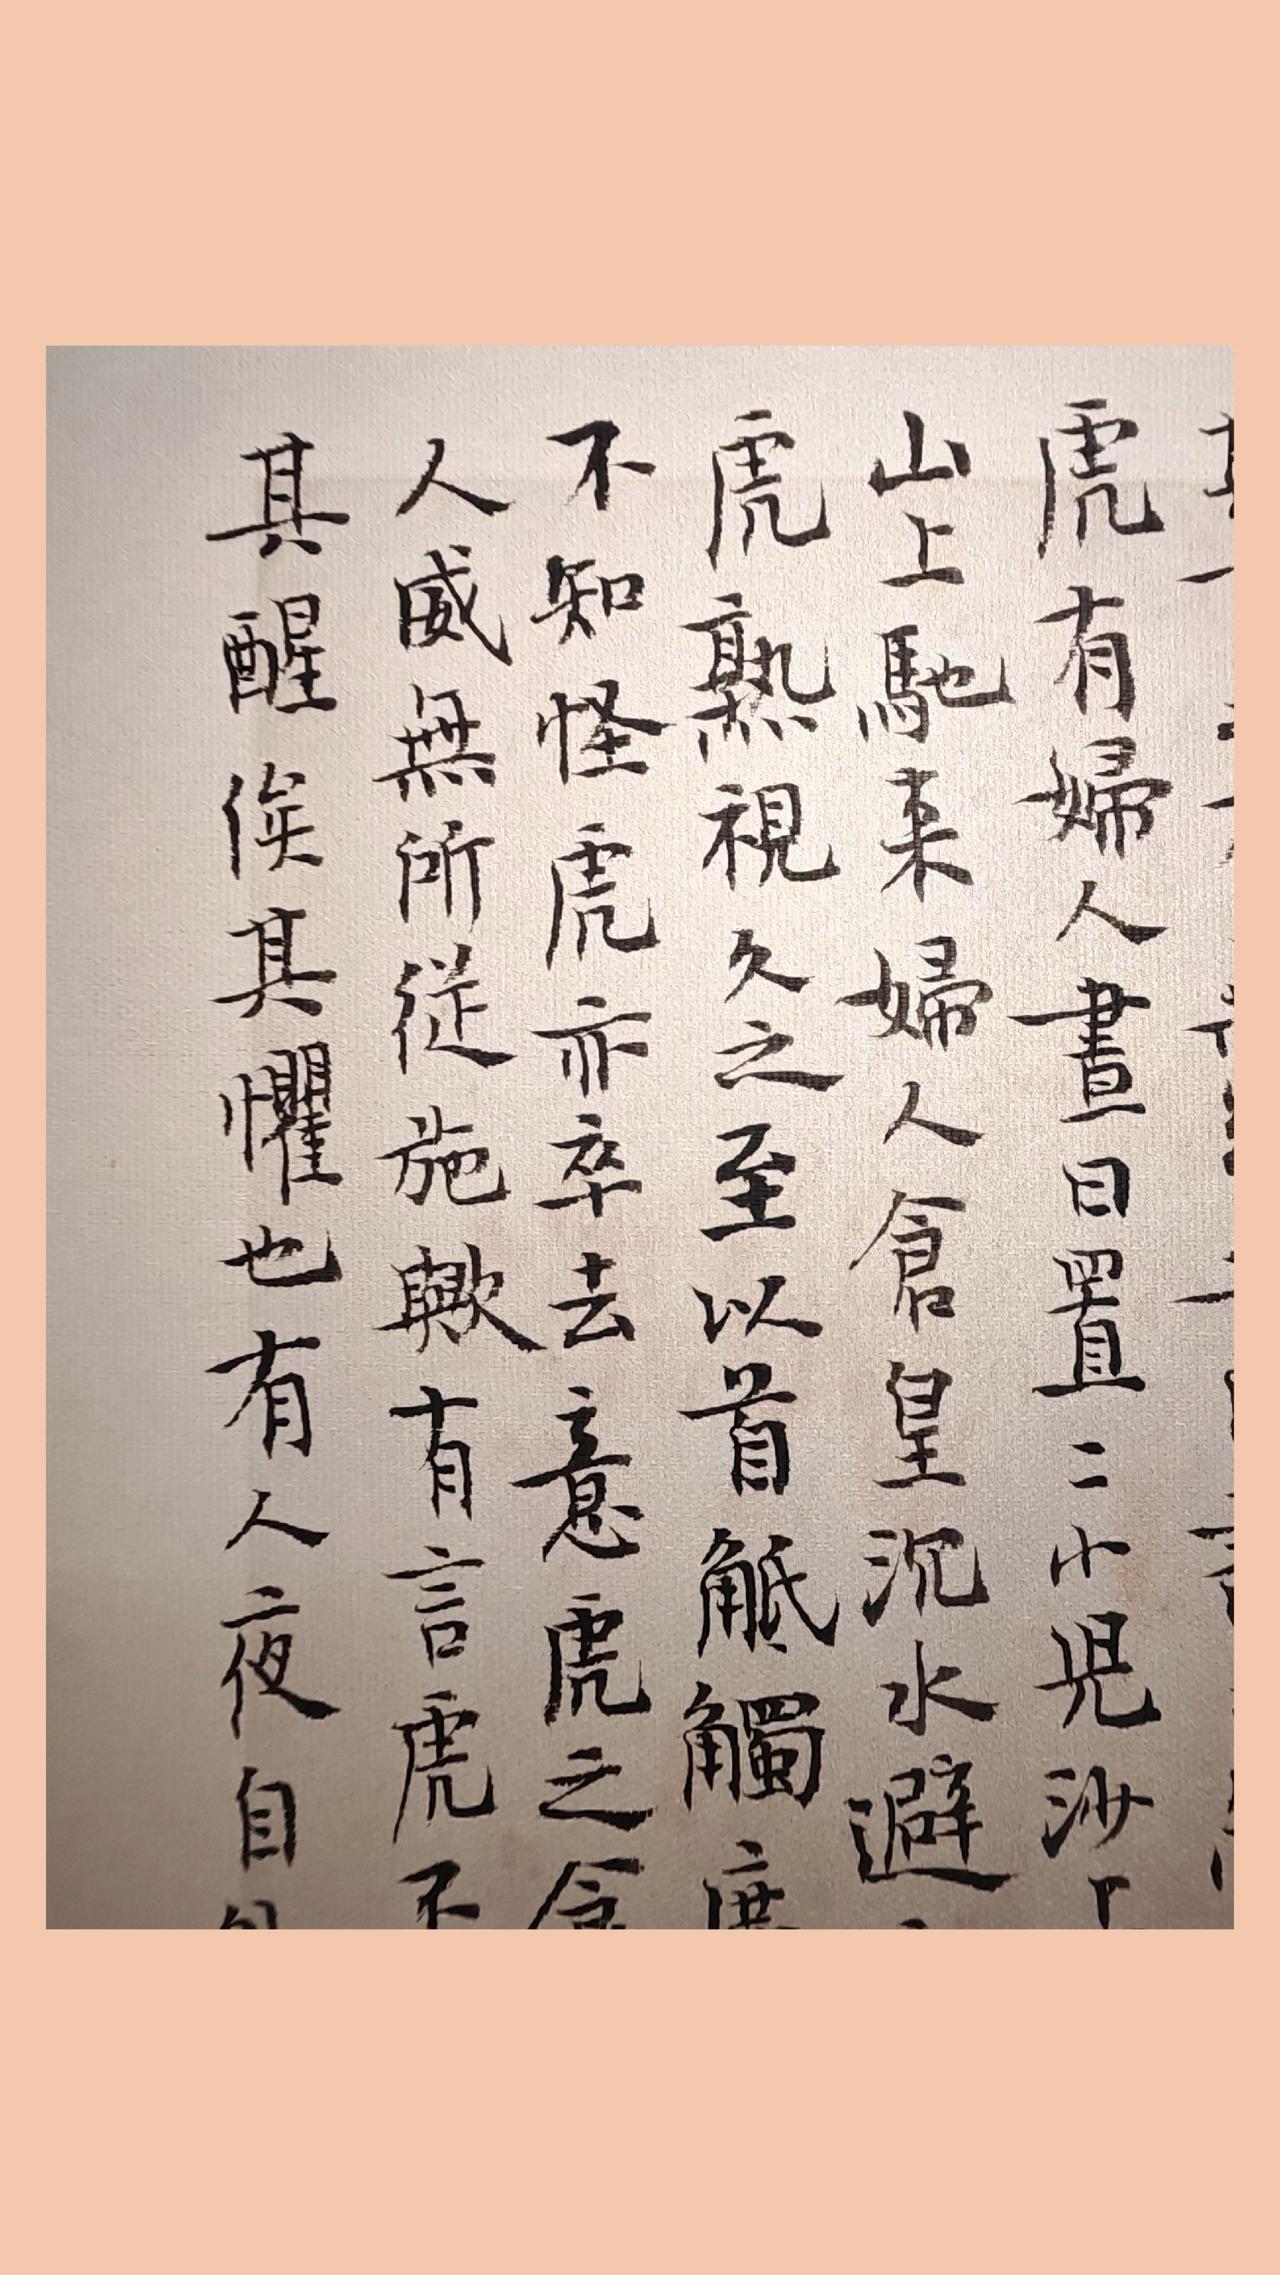 虎有婦人晝日置二小兒沙上
山上馳来婦人倉皇沉水避
虎熟視久之至以首觝觸庶
不知怪虎亦卒去意虎之食
人威無所從施歟有言虎不
其醒俟其懼也有人夜自外